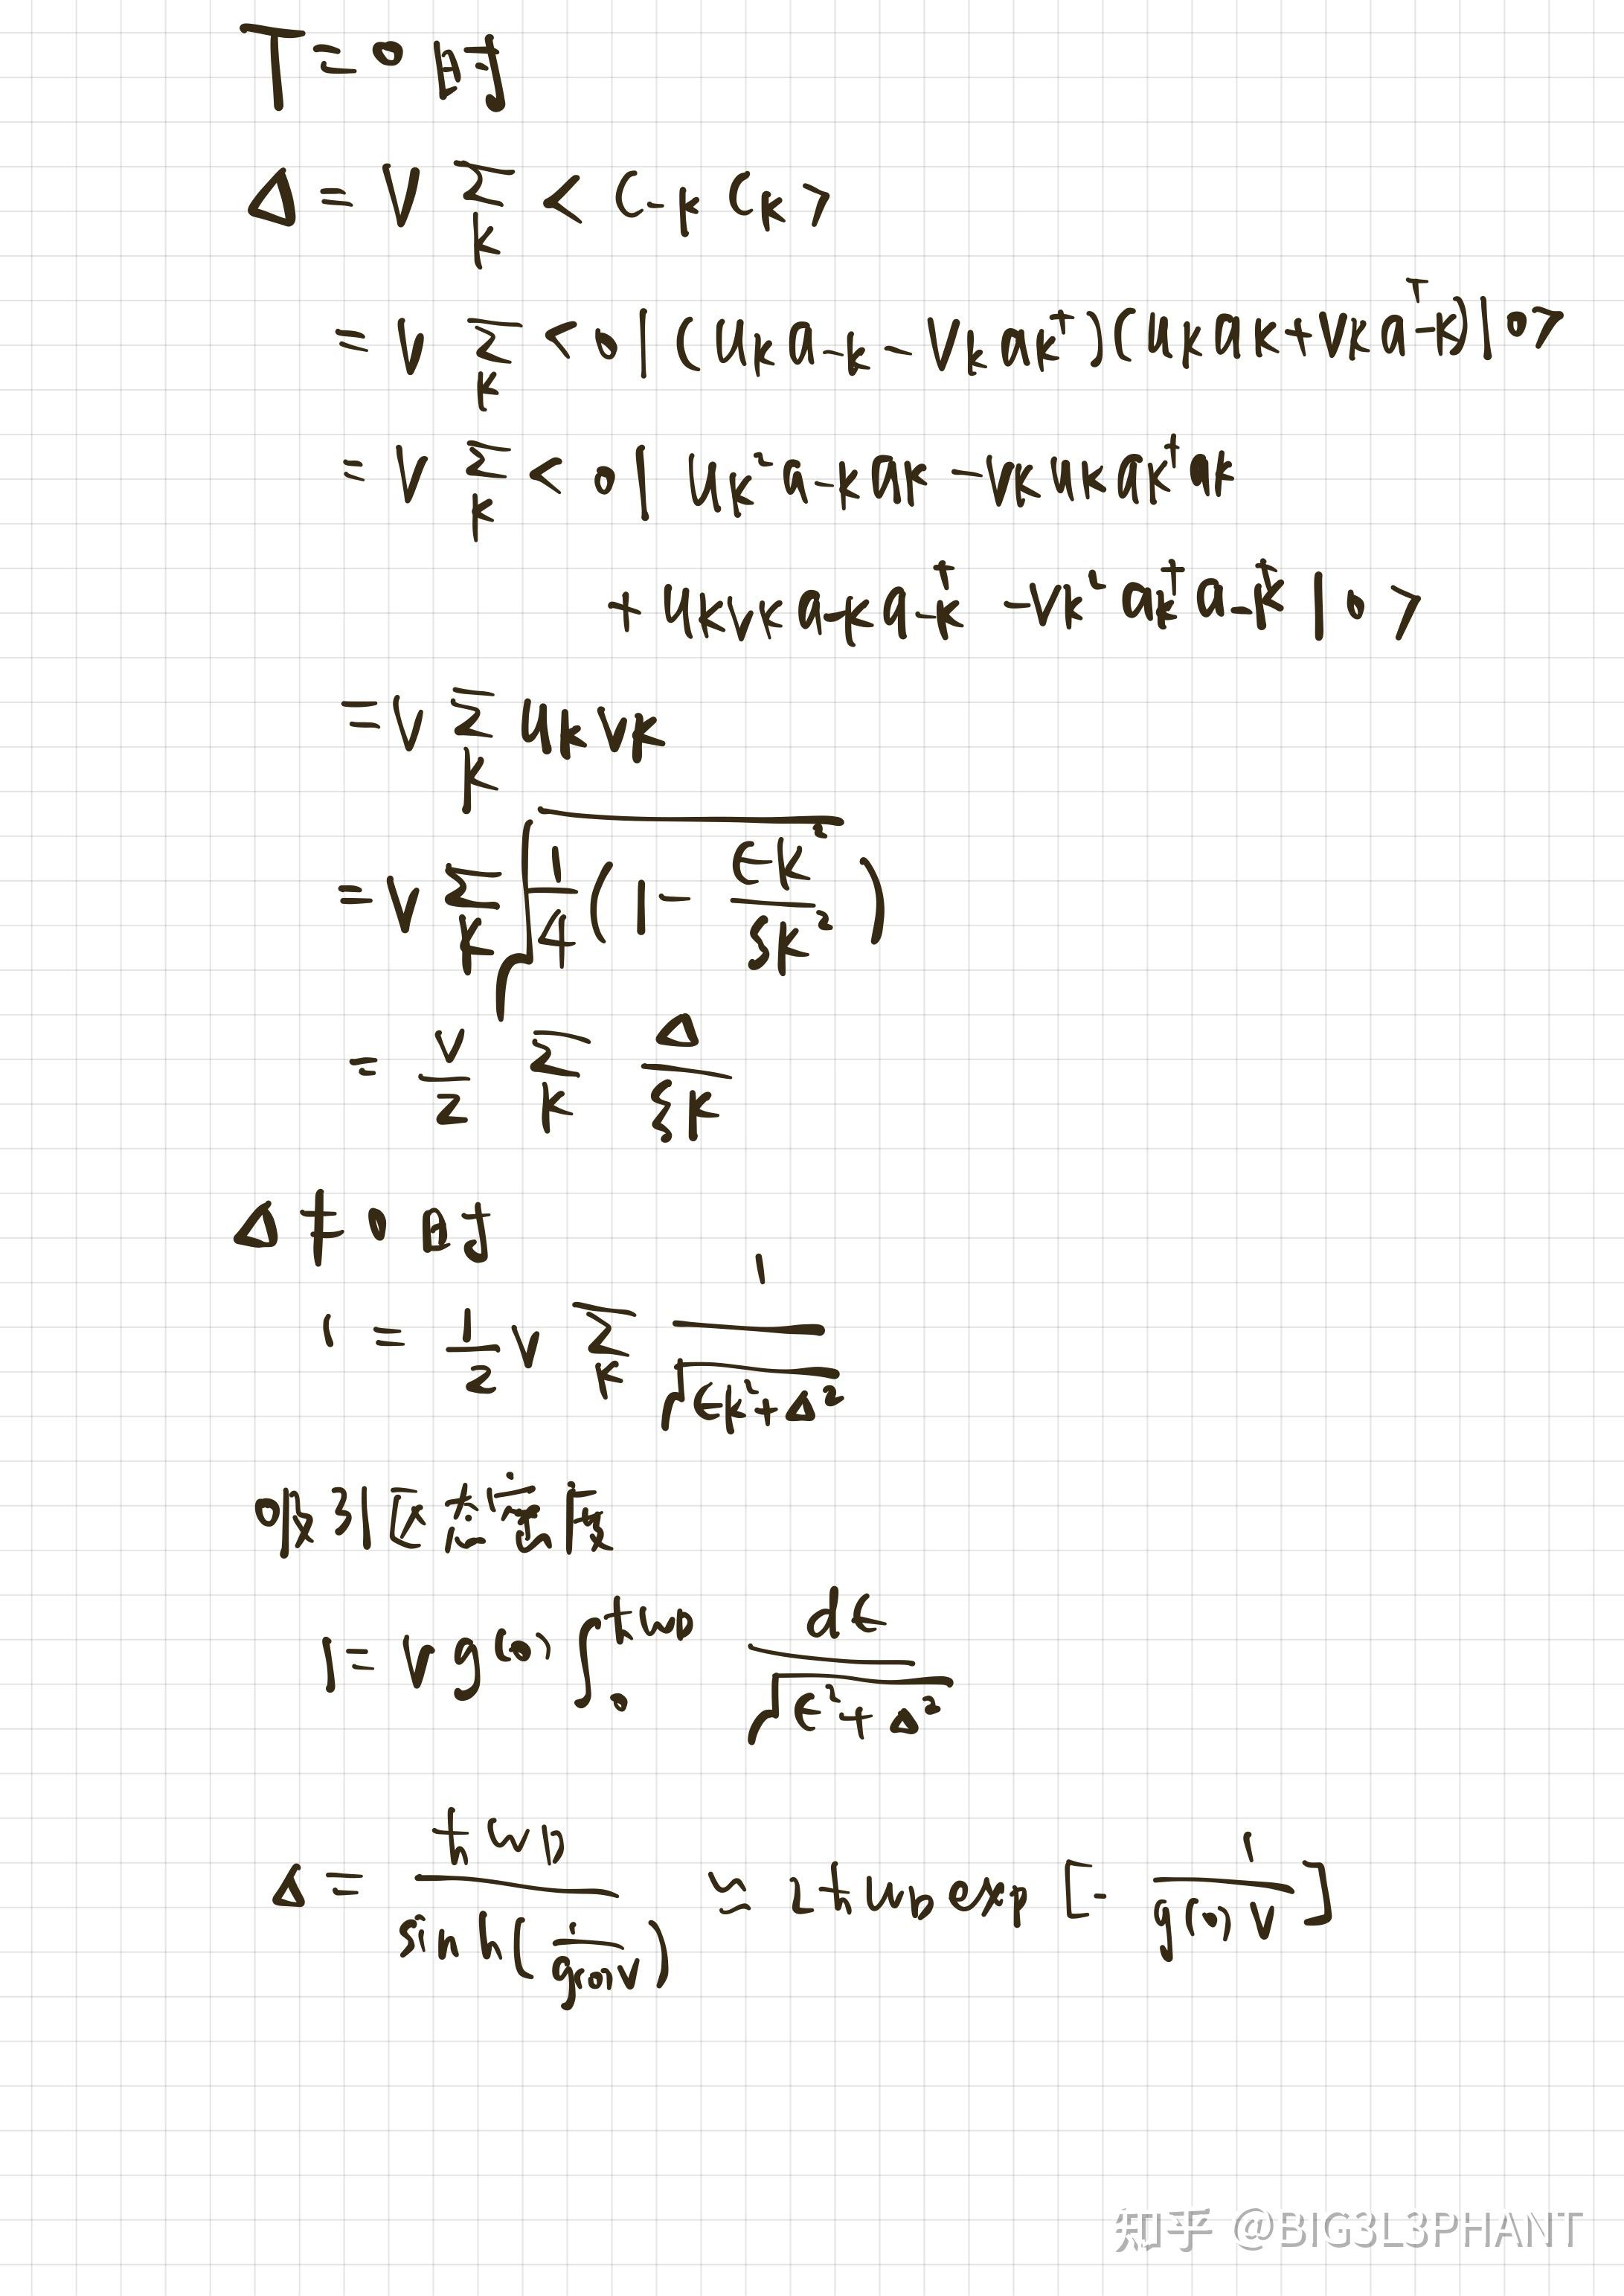 T=0时
Δ = V Σ_k <C_{-k} C_k>
= V Σ_k <0|(u_k a_{-k} - v_k a_k^†)(u_k a_k + v_k a_{-k}^†)|0>
= V Σ_k <0| u_k² a_{-k} a_k - v_k u_k a_k^† a_k
+ u_k v_k a_{-k} a_{-k}^† - v_k² a_k^† a_{-k}^† |0>
= V Σ_k u_k v_k
= V Σ_k √(1/4 (1 - ε_k²/ξ_k²))
= V/2 Σ_k Δ/ξ_k
Δ≠0时
1 = 1/2 V Σ_k 1/√(ε_k² + Δ²)
吸引区态密度
1 = V g(0) ∫_0^{ħω_D} dε/√(ε² + Δ²)
Δ = ħω_D / sinh(1/(g(0)V)) ≈ 2ħω_D exp[-1/(g(0)V)]
知乎 @BIG3L3PHANT